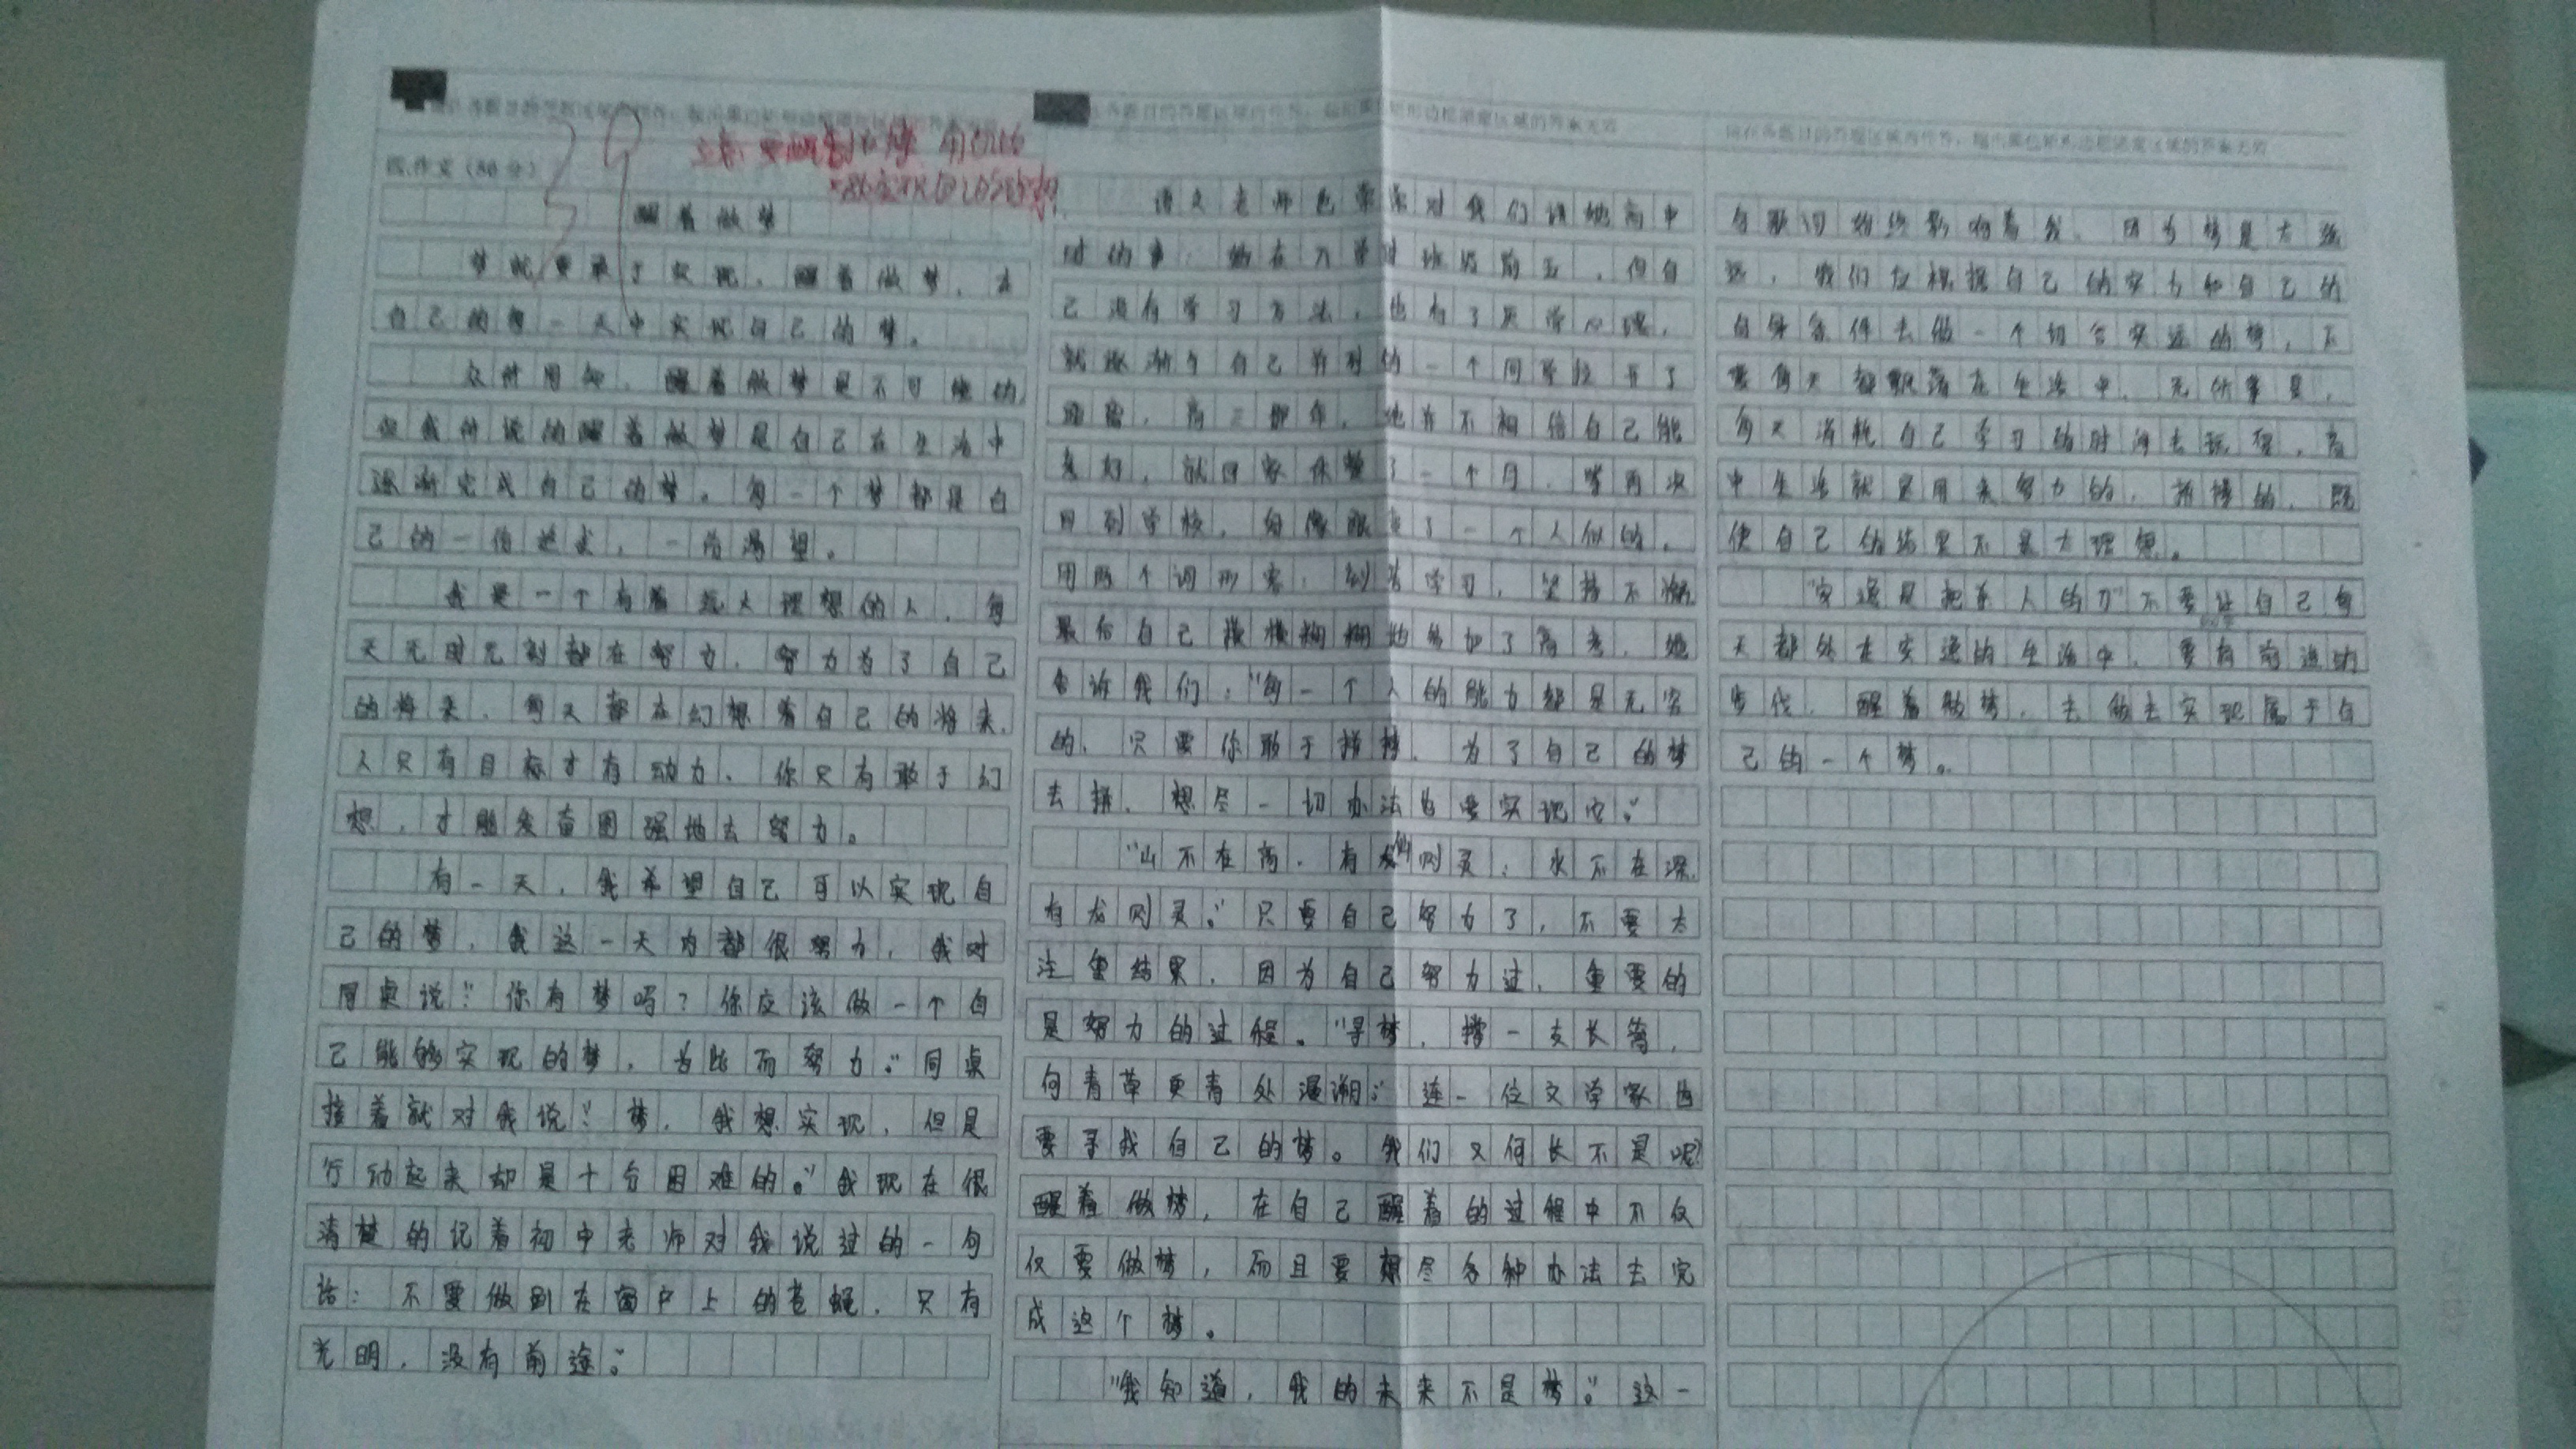 四.作文(50分)
醒着做梦
梦就要敢于实现,醒着做梦,在
自己的每一天中实现自己的梦。
众所周知,醒着做梦是不可能的,
但我所说的醒着做梦是自己在生活中
逐渐完成自己的梦。每一个梦都是自
己的一份追求,一份渴望。
我是一个有着远大理想的人,每
天无时无刻都在努力,努力为了自己
的将来,每天都在幻想着自己的将来,
人只有目标才有动力,你只有敢于幻
想,才能发奋图强地去努力。
有一天,我希望自己可以实现自
己的梦,我这一天内都很努力,我对
同桌说:"你有梦吗?你应该做一个自
己能够实现的梦,为此而努力。"同桌
接着就对我说:"梦,我想实现,但是
行动起来却是十分困难的。"我现在很
清楚的记着初中老师对我说过的一句
话:不要做趴在窗户上的苍蝇,只有
光明,没有前途。"
语文老师也常常对我们讲她高中
时的事,她在入学时班级前五,但自
己没有学习方法,也有了厌学心理,
就逐渐与自己并列的一个同学拉开了
距离,高三那年,她并不相信自己能
考好,就回家休整了一个月,等再次
回到学校,好像跟变了一个人似的,
用两个词形容:刻苦学习,坚持不懈,
最后自己模模糊糊地参加了高考,她
告诉我们:"每一个人的能力都是无穷
的,只要你敢于拼搏,为了自己的梦
去拼,想尽一切办法也要实现它。"
"山不在高,有仙则灵;水不在深,
有龙则灵。"只要自己努力了,不要太
注重结果,因为自己努力过,重要的
是努力的过程。"寻梦,撑一支长篙,
向青草更青处漫溯;"连一位文学家也
要寻找自己的梦。我们又何长不是呢?
醒着做梦,在自己醒着的过程中不仅
仅要做梦,而且要想尽各种办法去完
成这个梦。
"我知道,我的未来不是梦。"这一
句歌词始终影响着我,因为梦是太遥
远,我们应根据自己的实力和自己的
自身条件去做一个切合实际的梦,不
要每天都飘荡在生活中,无所事是,
每天消耗自己学习的时间去玩耍,高
中生活就是用来努力的,拼搏的,既
使自己的结果不是太理想。
"安逸是把杀人的刀"不要让自己每
天都处在安逸的生活中,要有前进的
步伐,醒着做梦,去做去实现属于自
己的一个梦。